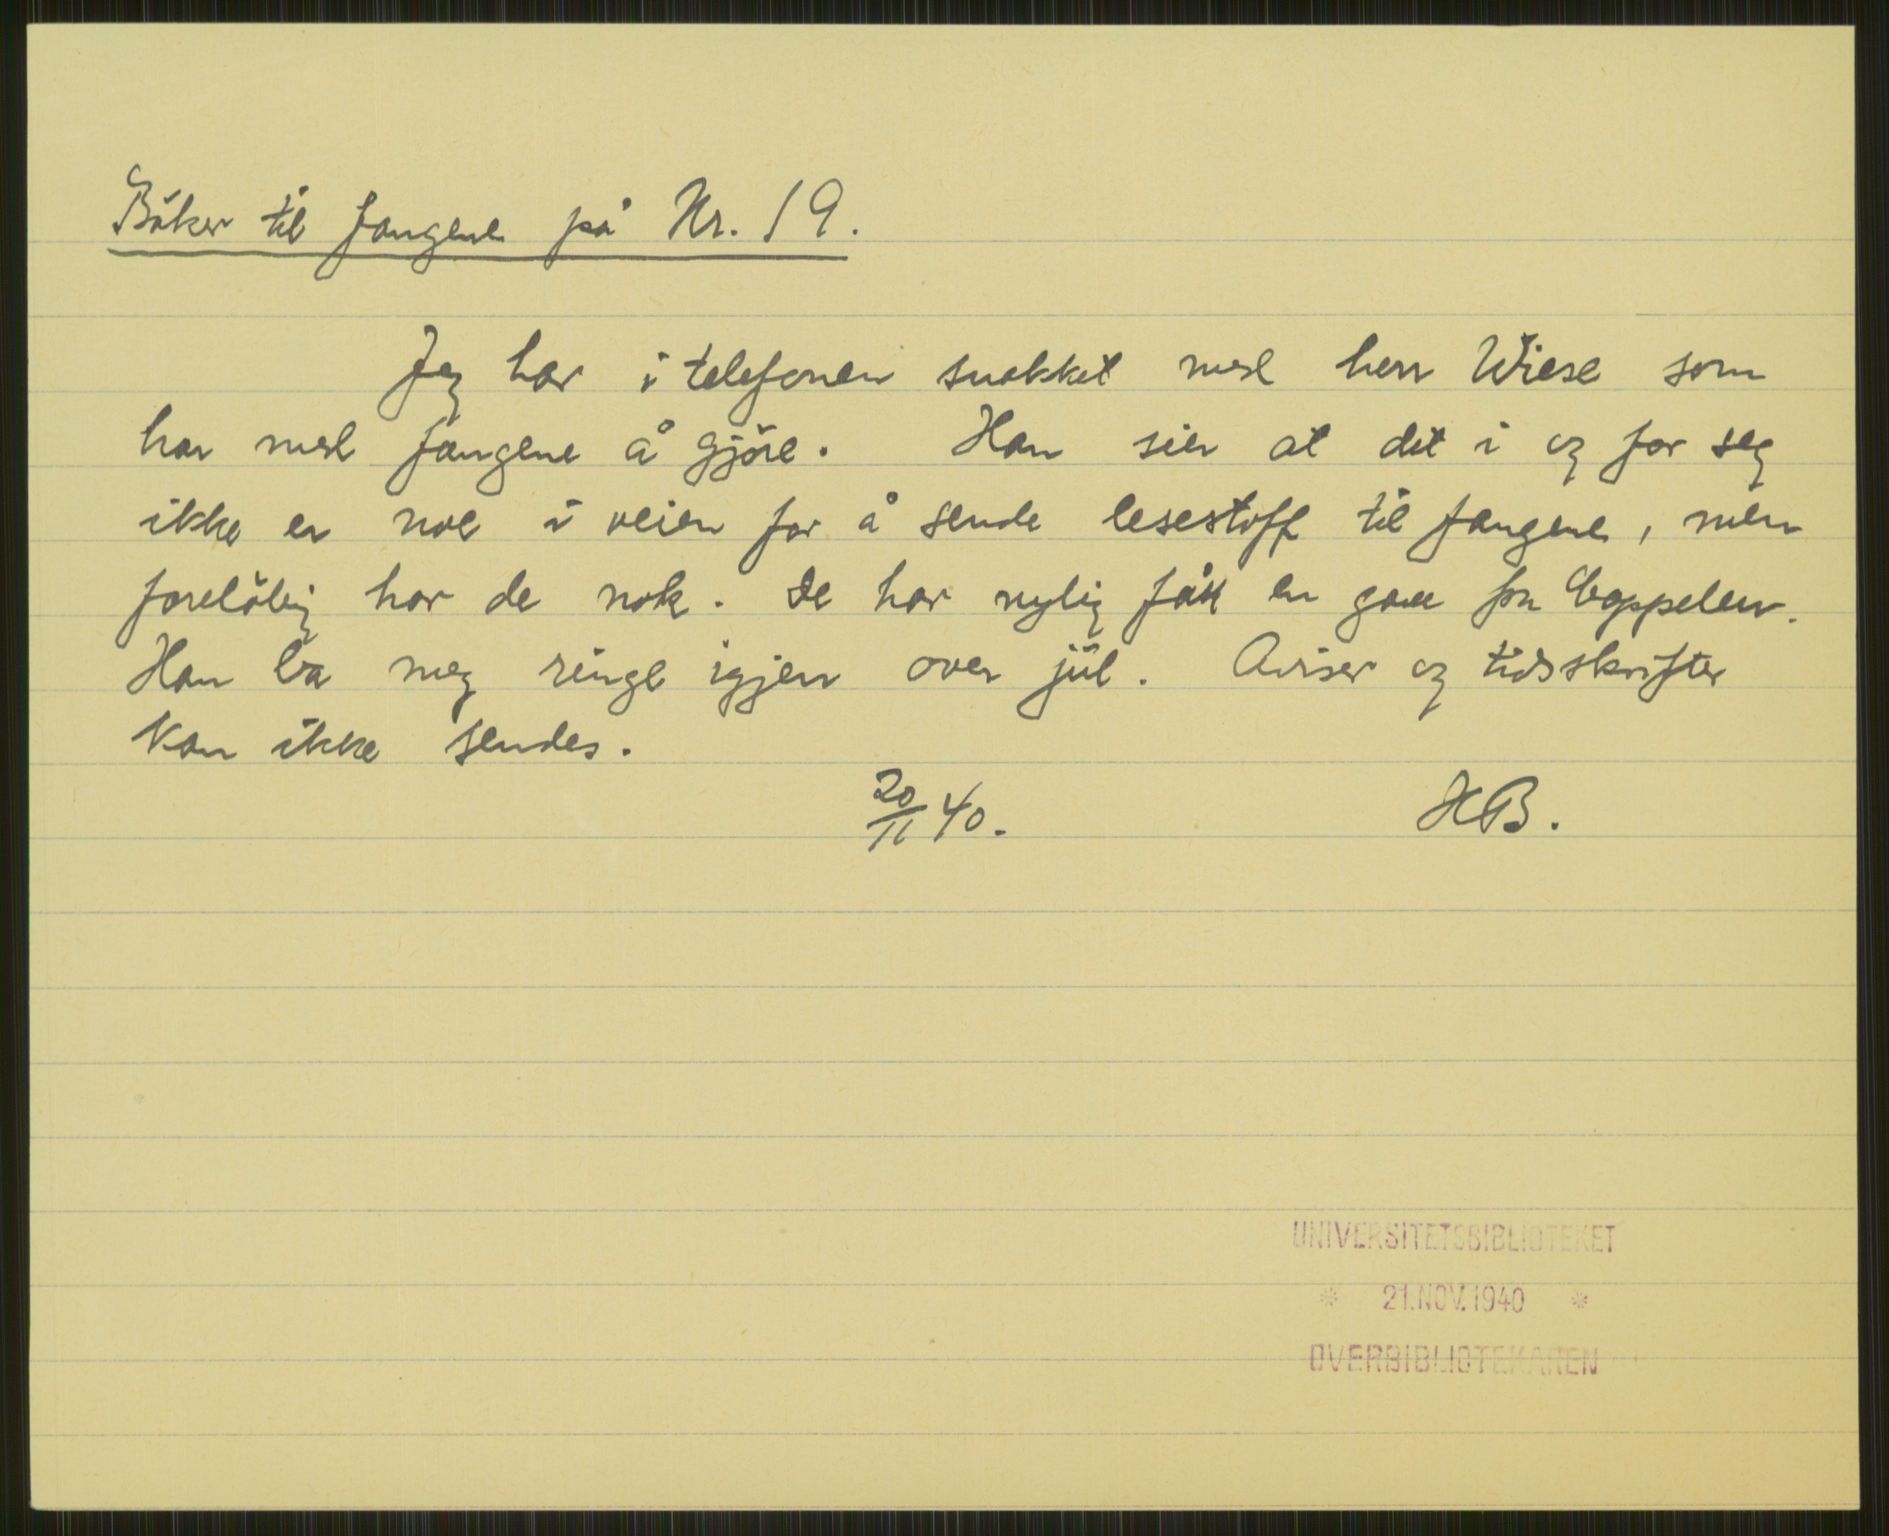 Böker til fangene på Nr. 19.
Jeg har i telefonen snakket med herr Wiese som
har med fangene å gjöre. Han sier at det i og for seg
ikke er noe i veien for å sende lesestoff til fangene, men
foreløbig har de nok. De har nylig fått en gave fra Cappelen.
Han ba meg ringe igjen over jul. Aviser og tidsskrifter
kan ikke sendes.
20/11 40. HB.
UNIVERSITETSBIBLIOTEKET
* 21.NOV.1940 *
OVERBIBLIOTEKAREN